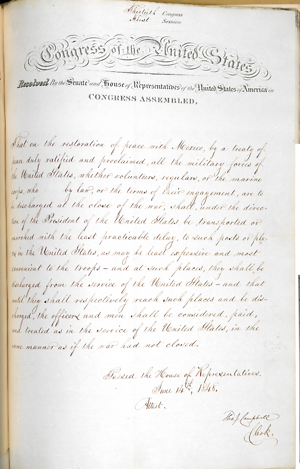 Thirtieth Congress
First Session
Congress of the United States
Resolved By the Senate and House of Representatives of the United States of America in
CONGRESS ASSEMBLED,
That on the restoration of peace with Mexico, by a treaty of
peace duly ratified and proclaimed, all the military forces of
the United States, whether volunteers, regulars, or the marine
corps, who by law, or the terms of their engagement, are to
be discharged at the close of the war, shall, under the direc-
tion of the President of the United States be transported or
marched with the least practicable delay, to such posts or pla-
ces in the United States, as may be least expensive and most
convenient to the troops — and at such places, they shall be
discharged from the service of the United States — and that
until they shall respectively reach such places and be dis-
charged, the officers and men shall be considered, paid,
and treated as in the service of the United States, in the
same manner as if the war had not closed.
Passed the House of Representatives.
June 14th, 1848.
Attest.
Tho. J. Campbell
Clerk.